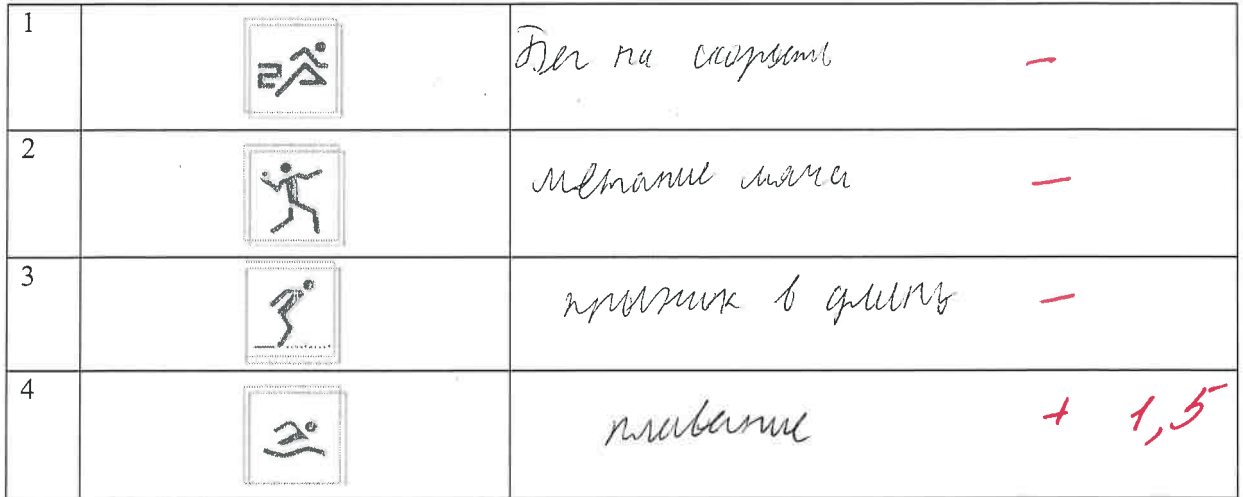 1
Бег на скорость
-
2
метание мяча
-
3
прыжик в длину
-
4
плавание
+ 1,5